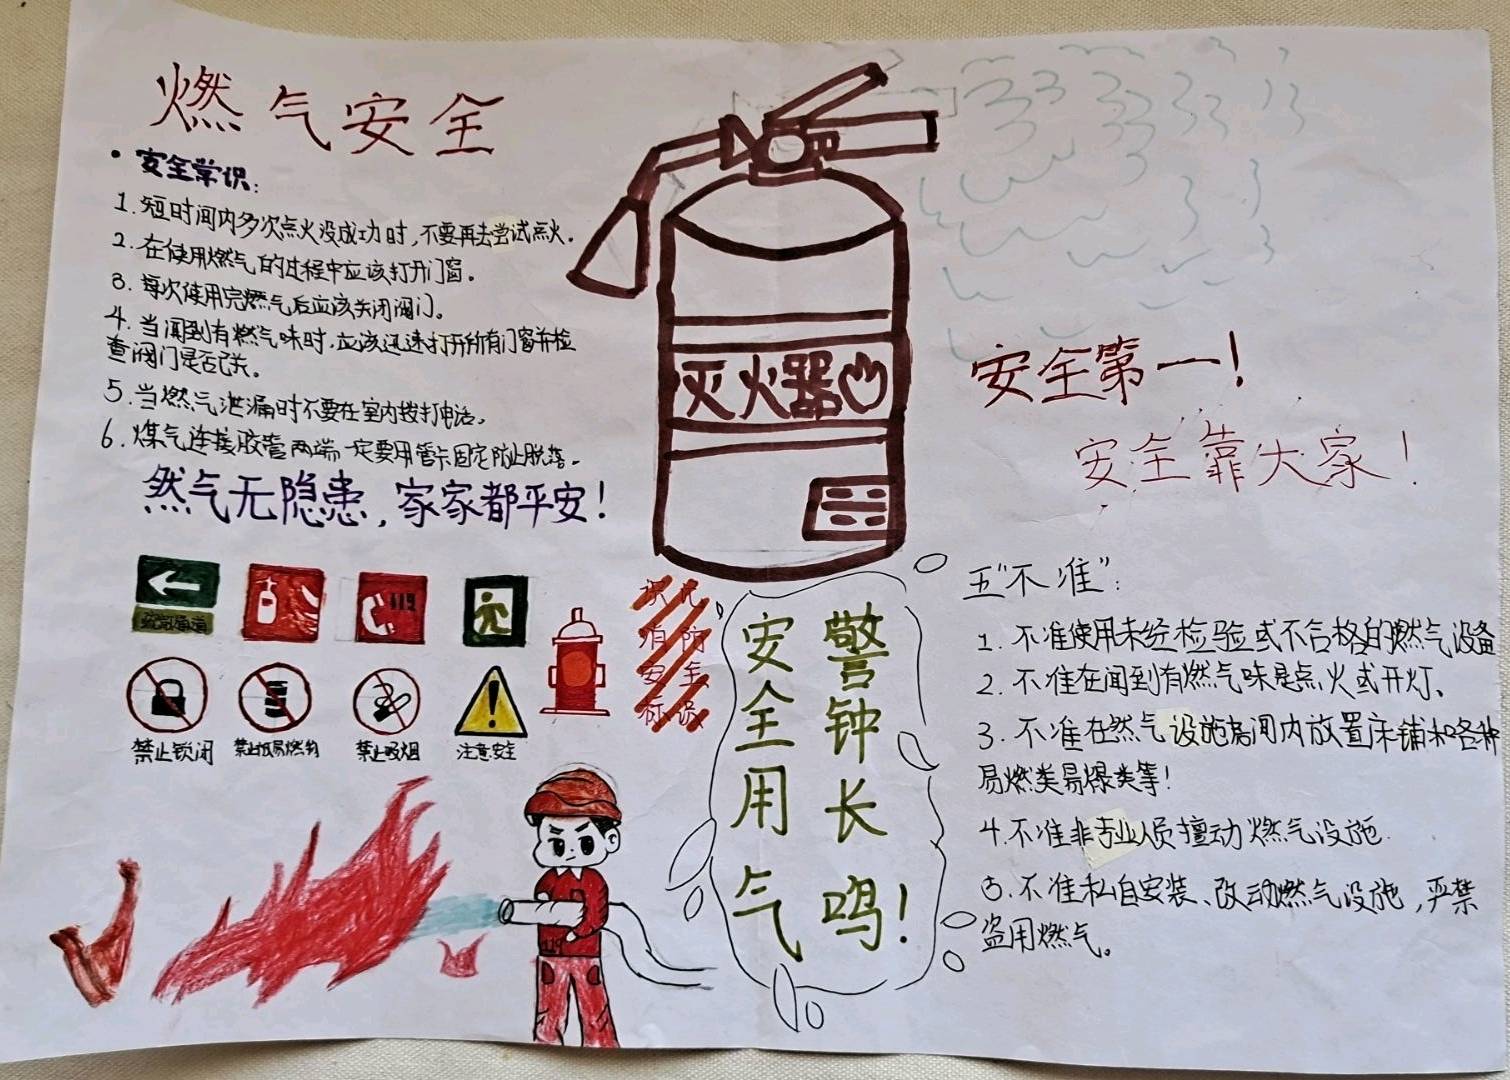 燃气安全
·安全学识：
1.短时间内多次点火没成功时，不要再去尝试点火。
2.在使用燃气的过程中应该打开门窗。
3.每次使用完燃气后应该关闭阀门。
4.当闻到有燃气味时，应该迅速打开所有门窗并检
查阀门是否已关。
5.当燃气泄漏时不要在室内拨打电话。
6.煤气连接胶管两端一定要用管卡固定防止脱落。
然气无隐患，家家都平安！
灭火器
安全第一！
安全靠大家！
119
禁止锁闭
禁止吸烟
注意安全
识几
消防
安全
标识
119
警钟长鸣！
安全用气
五“不准”：
1.不准使用未经检验或不合格的燃气设备
2.不准在闻到有燃气味是点火或开灯、
3.不准在然气设施房间内放置床铺和各种
易燃类易爆类等！
4.不准非专业人员擅动燃气设施.
5.不准私自安装、改动燃气设施，严禁
盗用燃气。